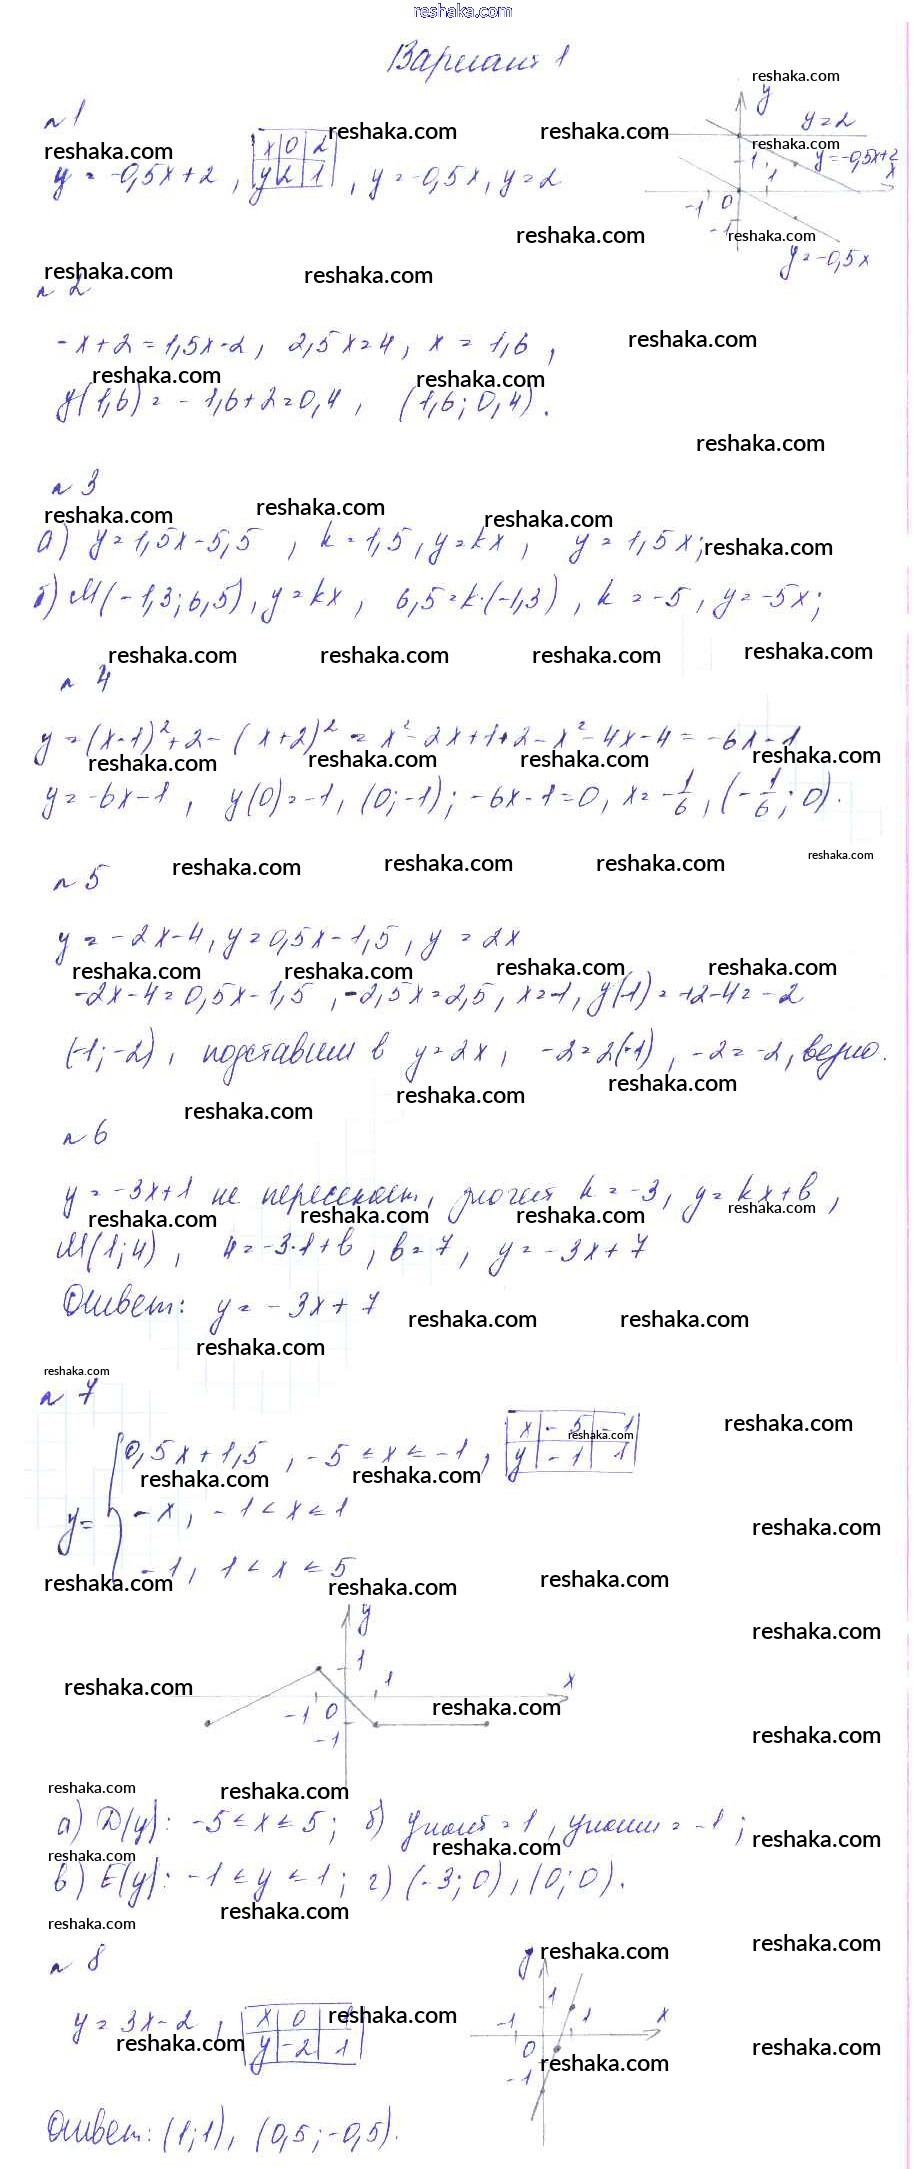 reshaka.com
Вариант 1
n 1
y = -0,5x+2, x 0 2
y 2 1, y = -0,5x, y = 2
y
y=2
1
y=-0,5x+2
x
1
-1 0
-1
y=-0,5x
n 2
-x+2=1,5x-2, 2,5x=4, x = 1,6,
y(1,6) = -1,6+2=0,4, (1,6; 0,4).
n 3
а) y=1,5x-5,5, k=1,5, y=kx, y=1,5x;
б) M(-1,3; 6,5), y=kx, 6,5=k·(-1,3), k = -5, y=-5x;
n 4
y=(x-1)²+2-(x+2)² = x²-2x+1+2-x²-4x-4 = -6x-1
y=-6x-1, y(0)=-1, (0; -1); -6x-1=0, x=-1/6, (-1/6; 0).
n 5
y = -2x-4, y=0,5x-1,5, y = 2x
-2x-4=0,5x-1,5, -2,5x=2,5, x=-1, y(-1)=+2-4=-2
(-1; -2), подставим в y=2x, -2=2(-1), -2=-2, верно.
n 6
y = -3x+1 не пересекает, значит k=-3, y=kx+b,
M(1; 4), 4=-3·1+b, b=7, y=-3x+7
Ответ: y = -3x+7
n 7
y= { 0,5x+1,5, -5 ≤ x ≤ -1, x -5 -1
y -1 1
-x, -1 < x ≤ 1
-1, 1 < x ≤ 5
y
1
1
x
-1 0
-1
а) D(y): -5 ≤ x ≤ 5; б) yнаиб = 1, yнаим = -1;
в) E(y): -1 ≤ y ≤ 1; г) (-3; 0), (0; 0).
n 8
y = 3x-2, x 0 1
y -2 1
y
1
-1 1 x
0
-1
Ответ: (1; 1), (0,5; -0,5).